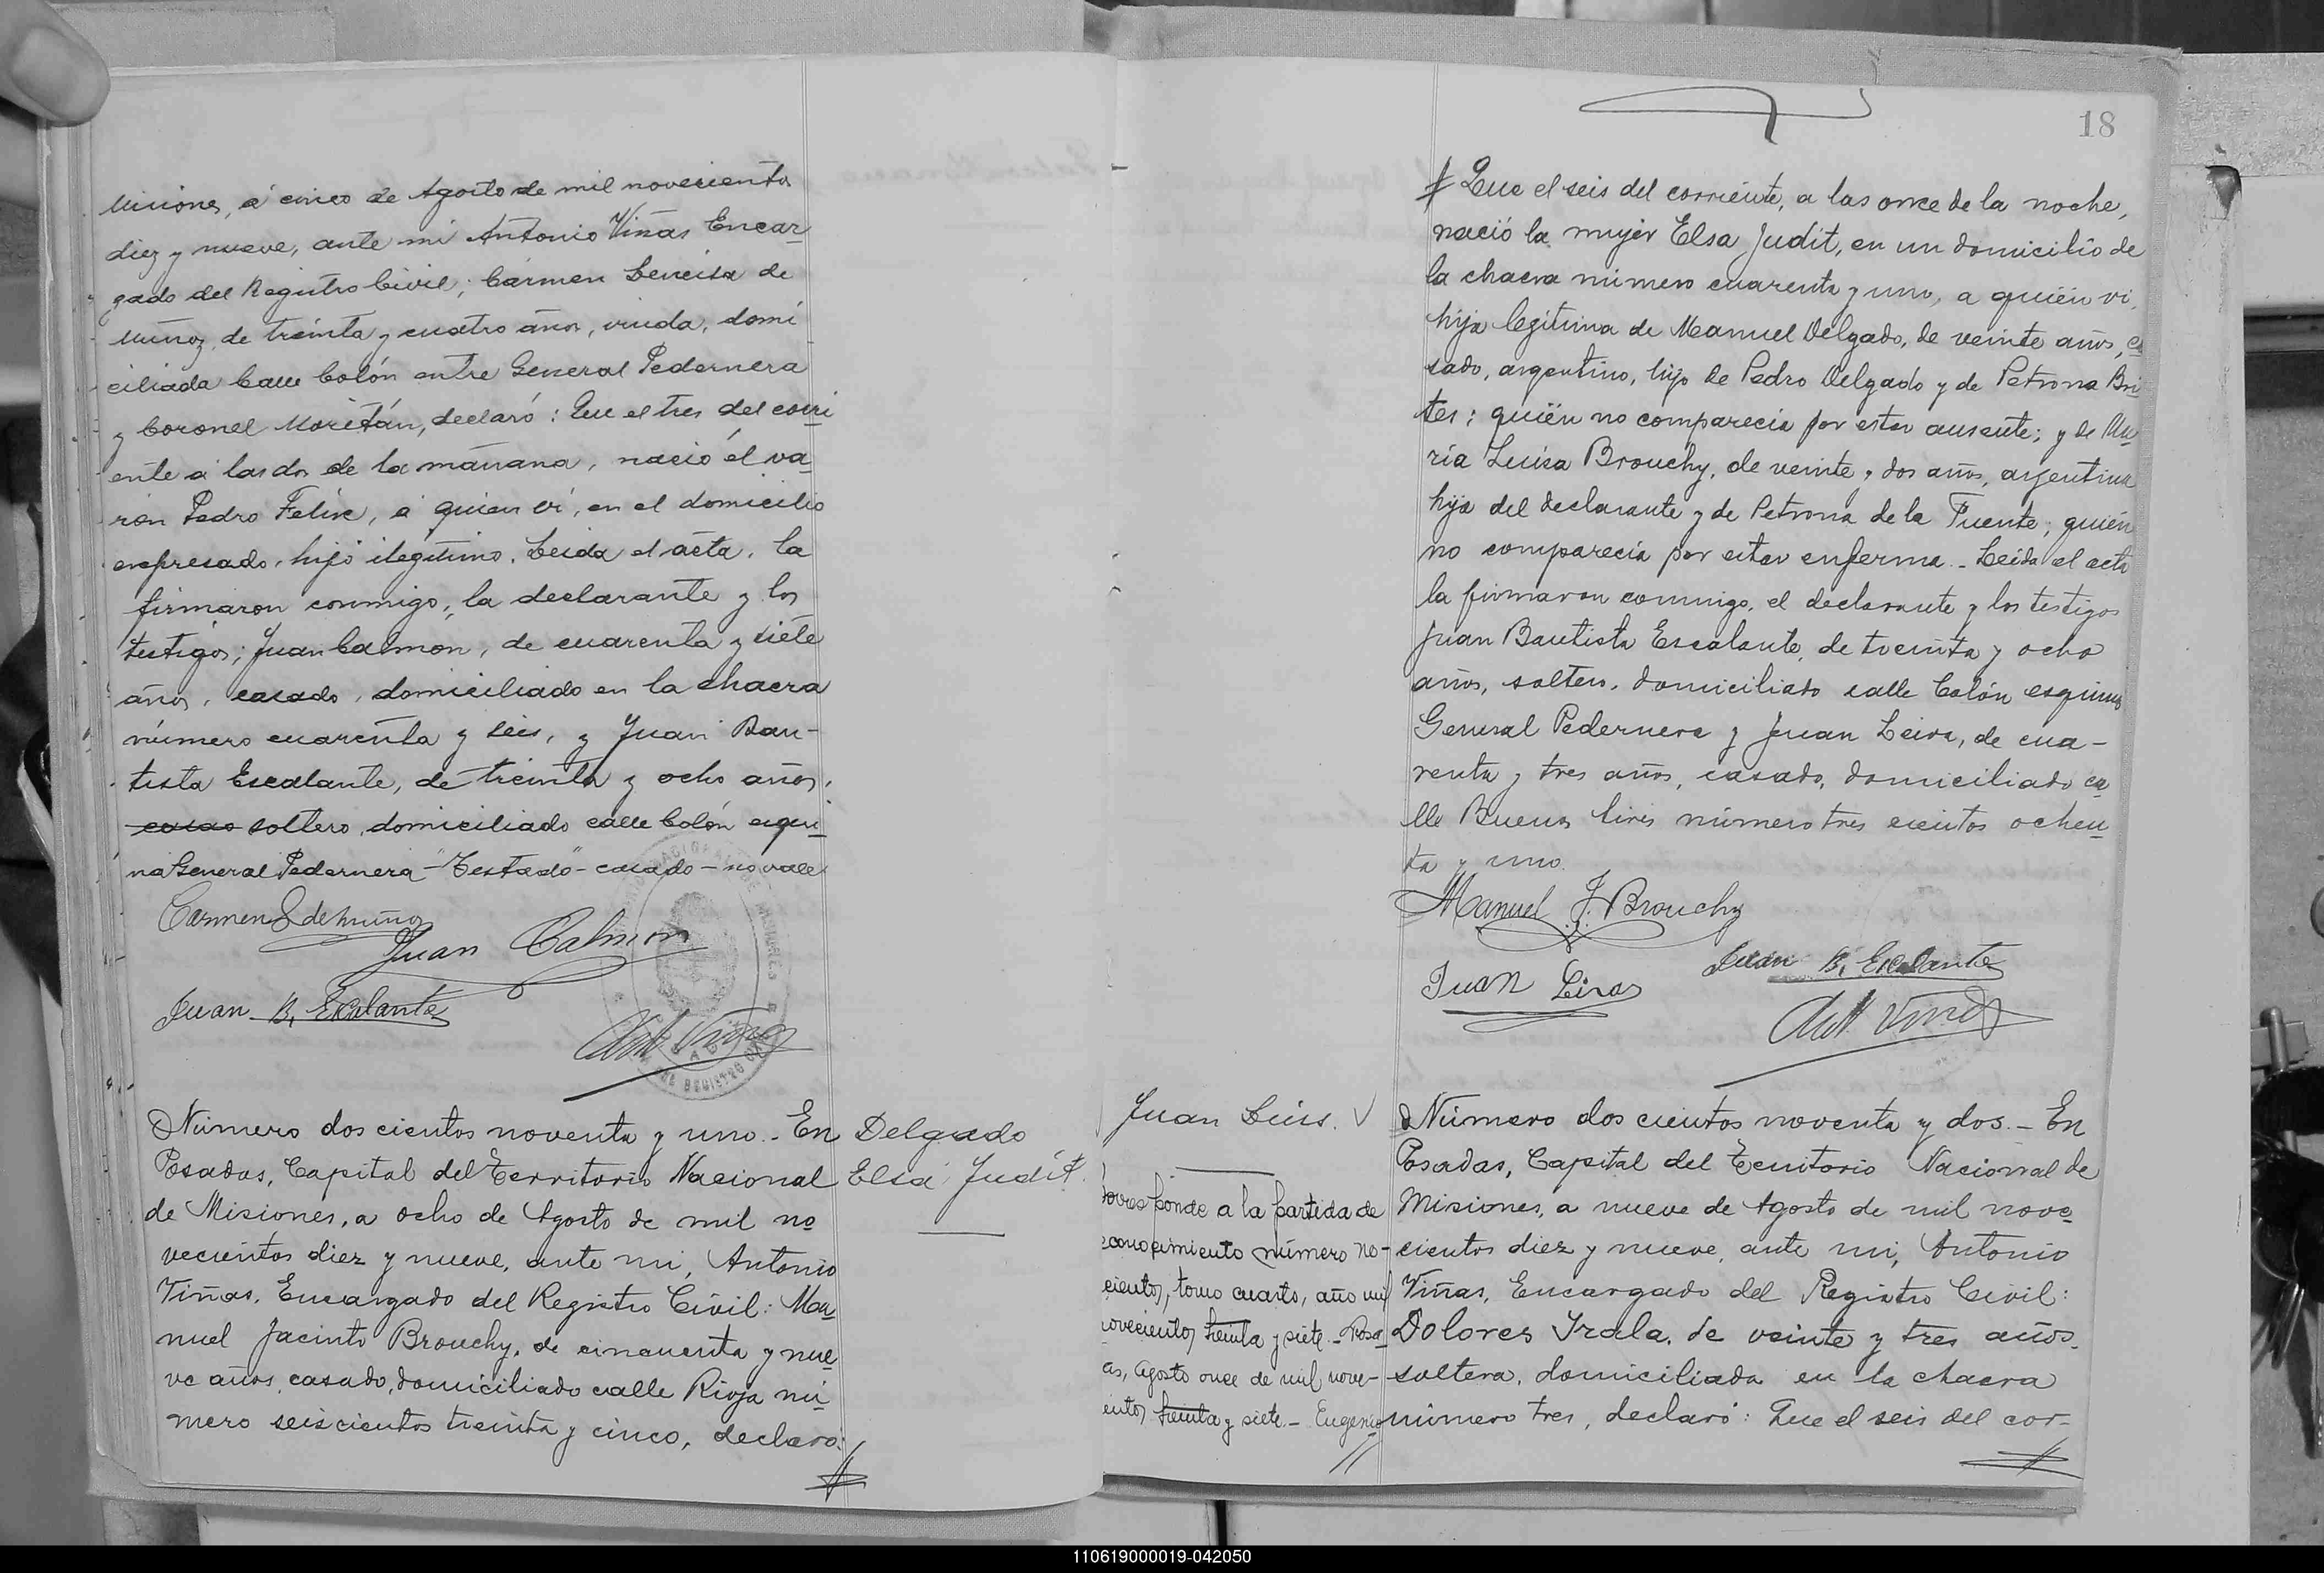 Misiones, á cinco de Agosto de mil novecientos
diez y nueve, ante mi Antonio Viñas Encar-
gado del Registro Civil; Cármen Lencisa de
Muñoz, de treinta y cuatro años, viuda, domi
ciliada Calle Colón entre General Pedernera
y Coronel Moritán, declaró: Que el tres del corri
ente á las dos de la mañana, nació el va
rón Pedro Felix, á quien ví, en el domicilio
expresado, hijo ilegítimo. Leida el acta, la
firmaron conmigo, la declarante y los
testigos; Juan Calmon, de cuarenta y siete
años, casado, domiciliado en la chacra
número cuarenta y seis, y Juan Bau-
tista Escalante, de treinta y ocho años,
casao soltero, domiciliado calle Colón esqui
na General Pedernera - "Testado" - casado - no vale
Carmen L de muñoz
Juan Calmon
Juan B. Escalante
Ant Viñas
Número dos cientos noventa y uno. - En
Posadas, Capital del Territorio Nacional
de Misiones, a ocho de Agosto de mil no
vecientos diez y nueve, ante mi, Antonio
Viñas, Encargado del Registro Civil: Ma
nuel Jacinto Brouchy, de cincuenta y nue
ve años, casado, domiciliado calle Rioja nú
mero seiscientos treinta y cinco, declaró:
Delgado
Elsa Judit
18
Que el seis del corriente, a las once de la noche,
nació la mujer Elsa Judit, en un domicilio de
la chacra número cuarenta y uno, a quién ví,
hija legitima de Manuel Delgado, de veinte años, ca
sado, argentino, hijo de Pedro Delgado y de Petrona Bri
tes; quién no comparecia por estar ausente; y de Ma
ría Luisa Brouchy, de veinte y dos años, argentina
hija del declarante y de Petrona de la Fuente; quién
no comparecia por estar enferma. - Leida el acta
la firmaron conmigo, el declarante y los testigos
Juan Bautista Escalante, de treinta y ocho
años, soltero, domiciliado calle Colón esquina
General Pedernera y Juan Leiva, de cua-
renta y tres años, casado, domiciliado ca
lle Buenos Aires número tres cientos ochen
ta y uno.
Manuel J. Brouchy
Juan B. Escalante
Juan Leiva
Ant Viñas
Juan Luis.
Corresponde a la partida de
econocimiento número no-
cientos, tomo cuarto, año mil
novecientos treinta y siete - Posa
as, Agosto once de mil nove-
entos treinta y siete - Eugenio
Número dos cientos noventa y dos. - En
Posadas, Capital del Territorio Nacional de
Misiones, a nueve de Agosto de mil nove
cientos diez y nueve, ante mi, Antonio
Viñas, Encargado del Registro Civil:
Dolores Irala, de veinte y tres años.
soltera, domiciliada en la chacra
número tres, declaró: Que el seis del cor-
110619000019-042050